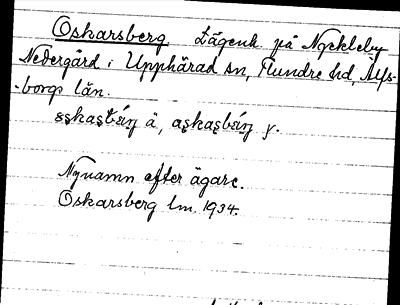 Oskarsberg Lägenh. på Nyckleby
Nedergård i Upphärad sn, Flundre hd, Älfs-
borgs län.
å, y.
Nynamn efter ägare.
Oskarsberg lm. 1934.